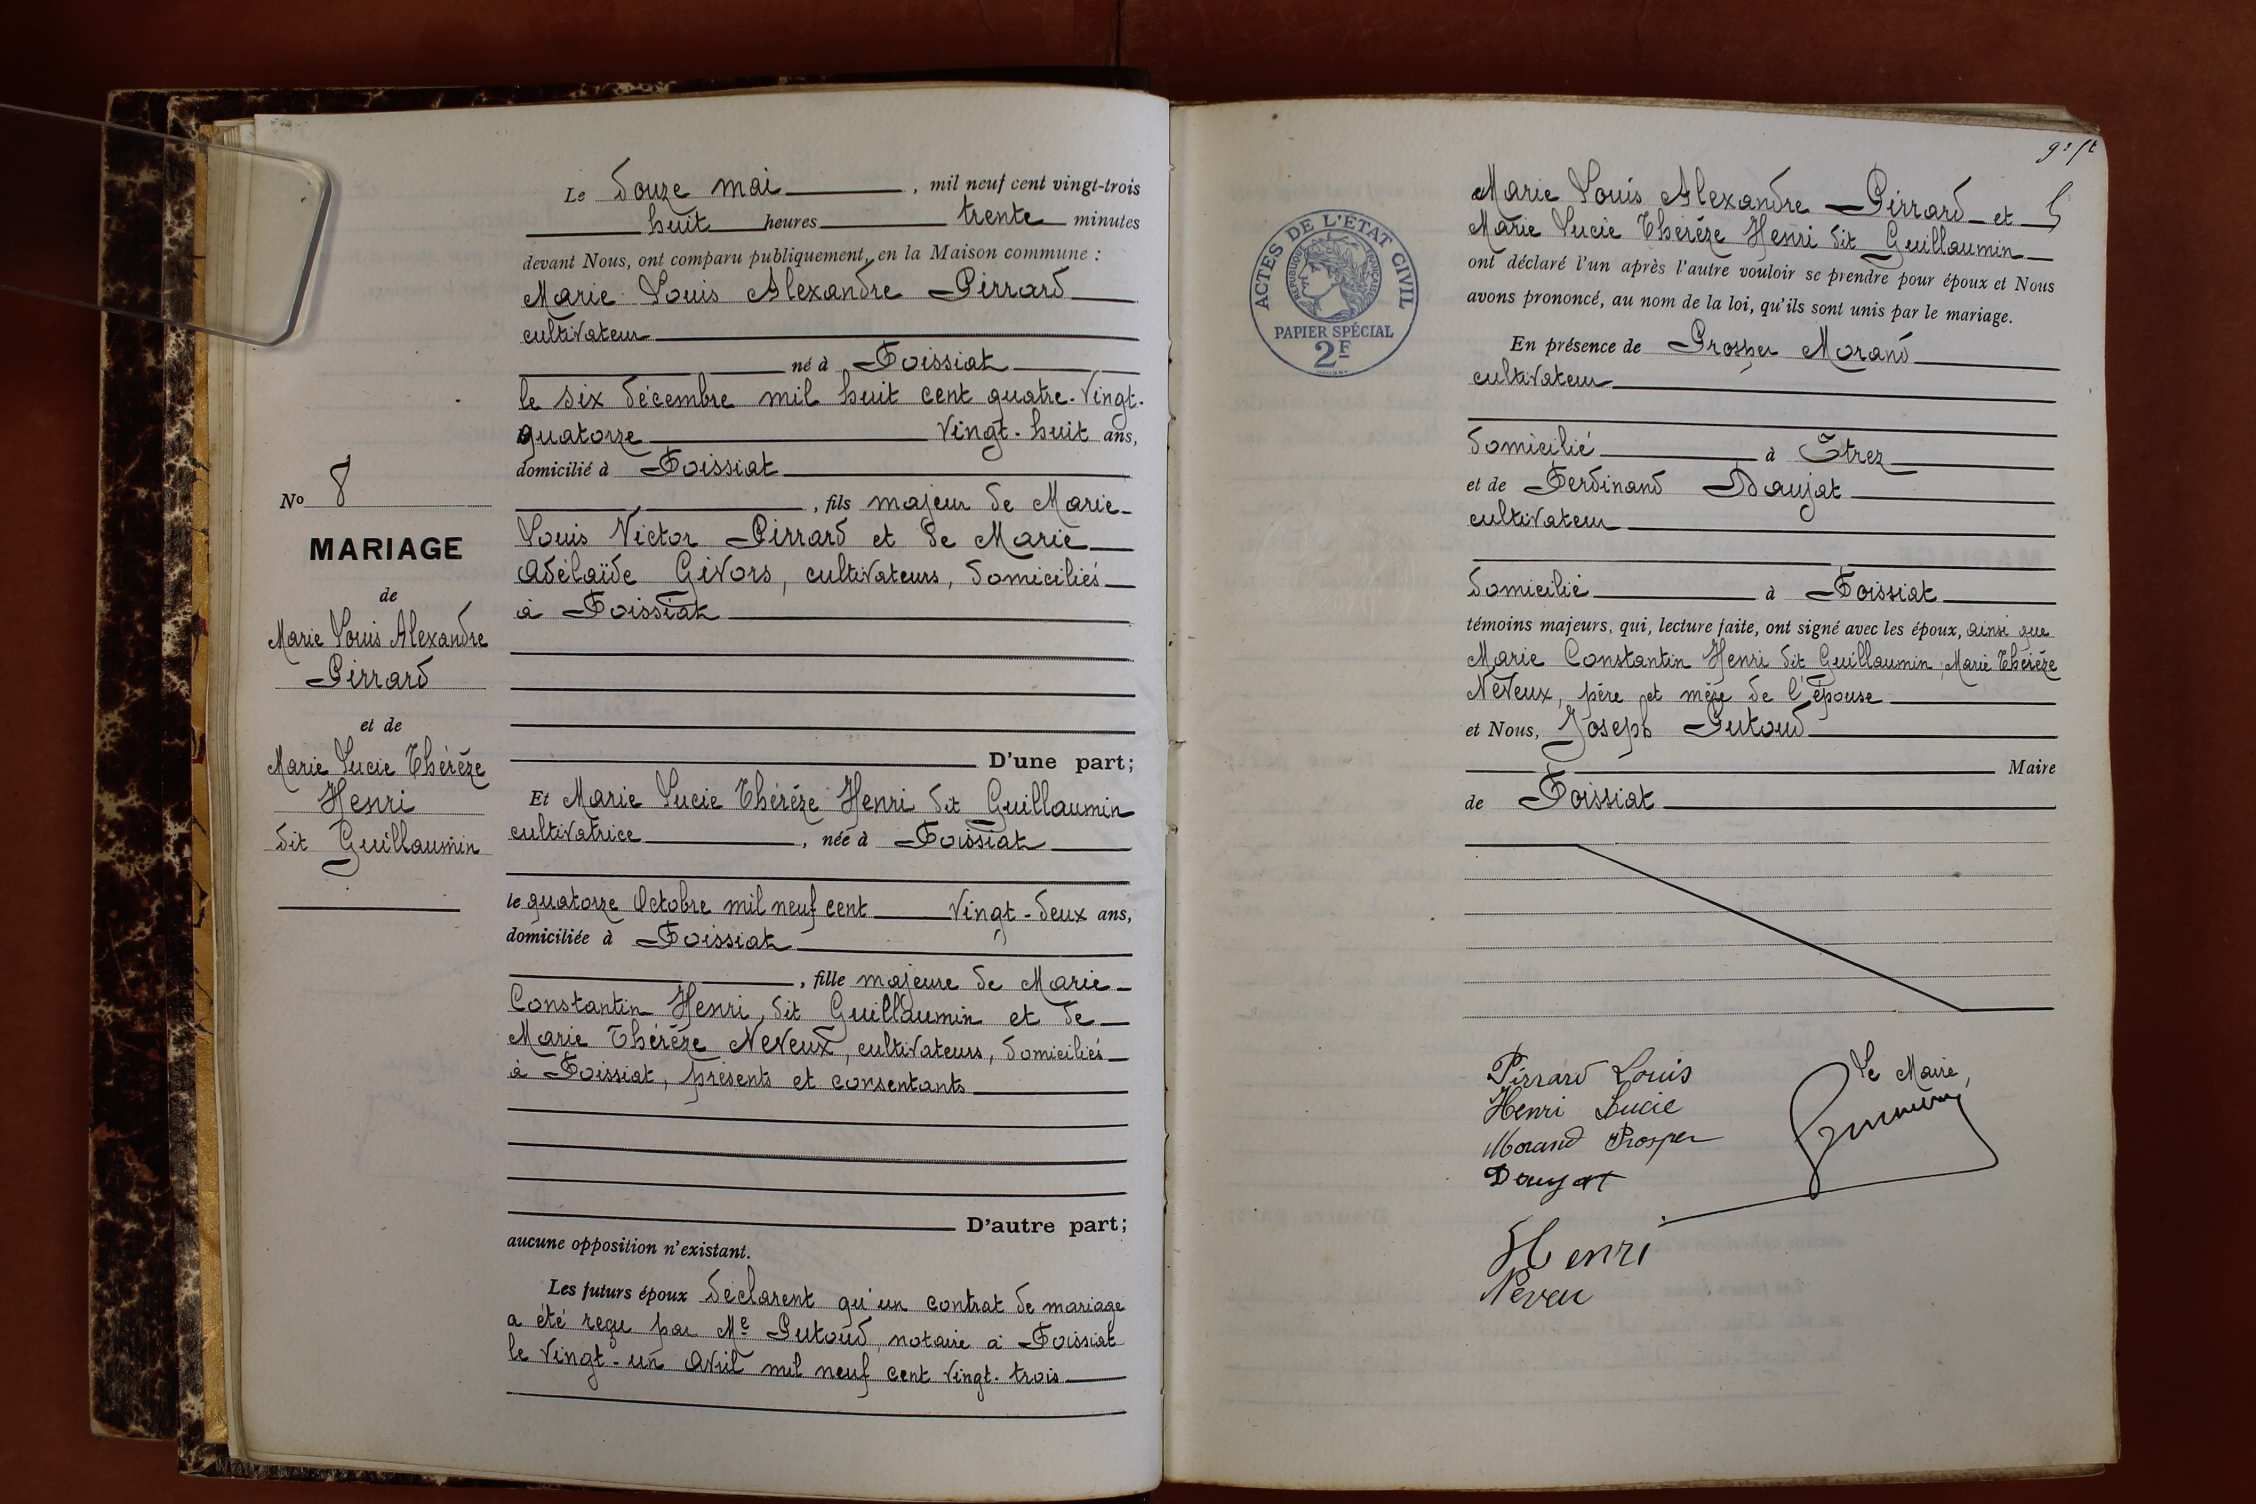 Le Douze mai, mil neuf cent vingt-trois
huit heures trente minutes
devant Nous, ont comparu publiquement, en la Maison commune :
Marie Louis Alexandre Pirrard
cultivateur
né à Foissiat
le six décembre mil huit cent quatre-vingt-
quatorze vingt-huit ans,
domicilié à Foissiat
, fils majeur de Marie
Louis Victor Pirrard et de Marie
Adélaïde Givors, cultivateurs, domiciliés
à Foissiat
D'une part;
Et Marie Lucie Thérèze Henri dit Guillaumin
cultivatrice, née à Foissiat
le quatorze Octobre mil neuf cent vingt-deux ans,
domiciliée à Foissiat
, fille majeure de Marie
Constantin Henri, dit Guillaumin et de
Marie Thérèze Neveux, cultivateurs, domiciliés
à Foissiat, présents et consentants
D'autre part;
aucune opposition n'existant.
Les futurs époux déclarent qu'un contrat de mariage
a été reçu par Me Putoud, notaire à Foissiat
le vingt-un Avril mil neuf cent vingt-trois
No 8
MARIAGE
de
Marie Louis Alexandre
Pirrard
et de
Marie Lucie Thérèze
Henri
dit Guillaumin
ACTES DE L'ETAT CIVIL
REPUBLIQUE FRANÇAISE
PAPIER SPÉCIAL
2F
Marie Louis Alexandre Pirrard et
Marie Lucie Thérèze Henri dit Guillaumin
ont déclaré l'un après l'autre vouloir se prendre pour époux et Nous
avons prononcé, au nom de la loi, qu'ils sont unis par le mariage.
En présence de Prosper Morand
cultivateur
domicilié à Étrez
et de Ferdinand Daujat
cultivateur
domicilié à Foissiat
témoins majeurs, qui, lecture faite, ont signé avec les époux, ainsi que
Marie Constantin Henri dit Guillaumin, Marie Thérèze
Neveux, père et mère de l'épouse
et Nous, Joseph Putoud
Maire
de Foissiat
Pirrard Louis
Henri Lucie
Morand Prosper
Daujat
Henri
Neveu
Le Maire,